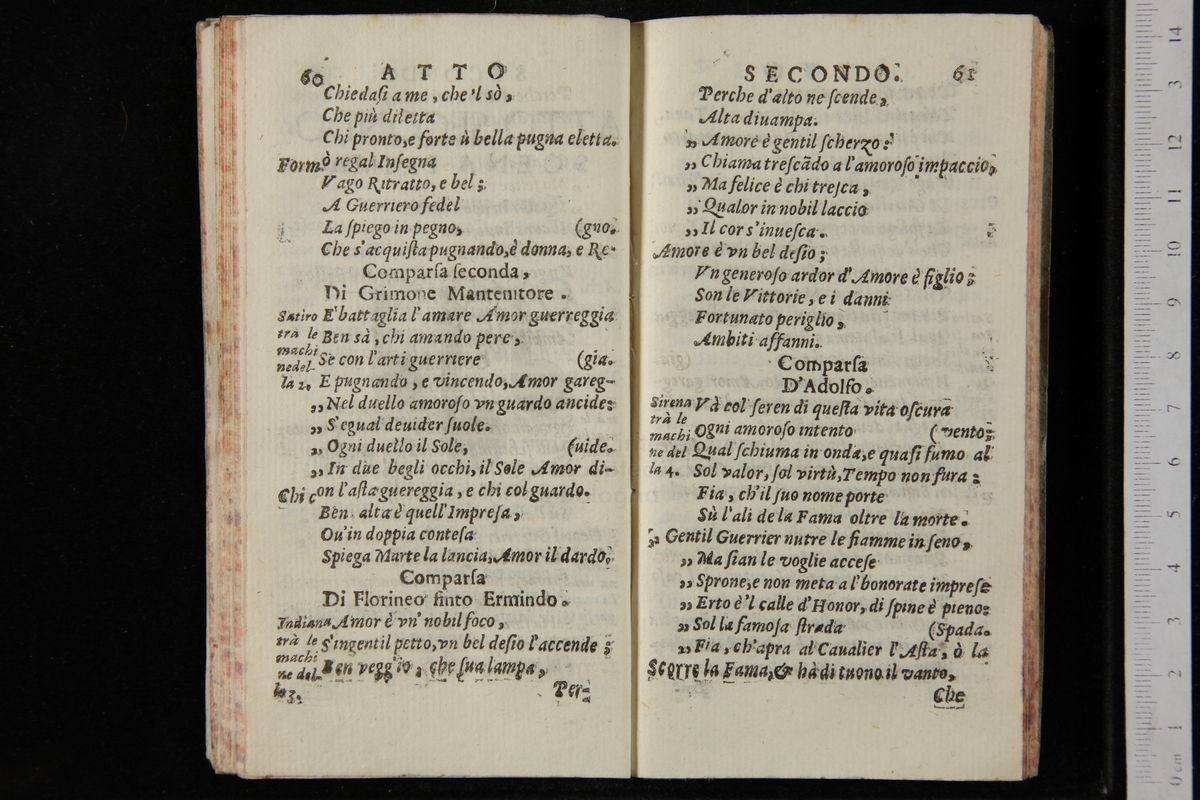 60 ATTO
Chiedaſi a me, che'l sò,
Che più diletta
Chi pronto, e forte ù bella pugna eletta.
Form ò regal Inſegna
Vago Ritratto, e bel;
A Guerriero fedel
La ſpiego in pegno, (gno.
Che s'acquiſta pugnando, è donna, e Re-
Comparſa ſeconda,
Di Grimone Mantenitore.
Satiro E' battaglia l'amare Amor guerreggia
trà le Ben sà, chi amando pere,
machi
nedel- Se con l'arti guerriere (gia.
la 2. E pugnando, e vincendo, Amor gareg-
„ Nel duello amoroſo vn guardo ancide;
„ S'egual deuider ſuole.
„ Ogni duello il Sole, (uide.
„ In due begli occhi, il Sole Amor di-
Chi con l'aſta guereggia, e chi col guardo.
Ben alta è quell'Impreſa,
Ou'in doppia conteſa
Spiega Marte la lancia, Amor il dardo.
Comparſa
Di Florineo finto Ermindo.
Indiana Amor è vn' nobil foco,
trà le S'in gentil petto, vn bel deſio l'accende;
machi
ne del- Ben veggio, che ſua lampa,
la 3. Per-
SECONDO. 61
Perche d'alto ne ſcende,
Alta diuampa.
„ Amore è gentil ſcherzo:
„ Chiama treſcãdo a l'amoroſo impaccio,
„ Ma felice è chi treſca,
„ Qualor in nobil laccio
„ Il cor s'inueſca.
Amore è vn bel deſio;
Vn generoſo ardor d'Amore è figlio;
Son le Vittorie, e i danni
Fortunato periglio,
Ambiti affanni.
Comparſa
D'Adolfo.
Sirena Và col ſeren di queſta vita oſcura
trà le
machi Ogni amoroſo intento (vento;
ne del Qual ſchiuma in onda, e quaſi fumo al
la 4. Sol valor, ſol virtù, Tempo non fura:
Fia, ch'il ſuo nome porte
Sù l'ali de la Fama oltre la morte.
„ Gentil Guerrier nutre le fiamme in ſeno,
„ Ma ſian le voglie acceſe
„ Sprone, e non meta a l'honorate impreſe
„ Erto è'l calle d'Honor, di ſpine è pieno:
„ Sol la famoſa ſtrada (Spada.
„ Fia, ch'apra al Caualier l'Aſta, ò la
Scorre la Fama, & hà di tuono il vanto,
Che
14
13
12
11
10
9
8
7
6
5
4
3
2
1
0 cm